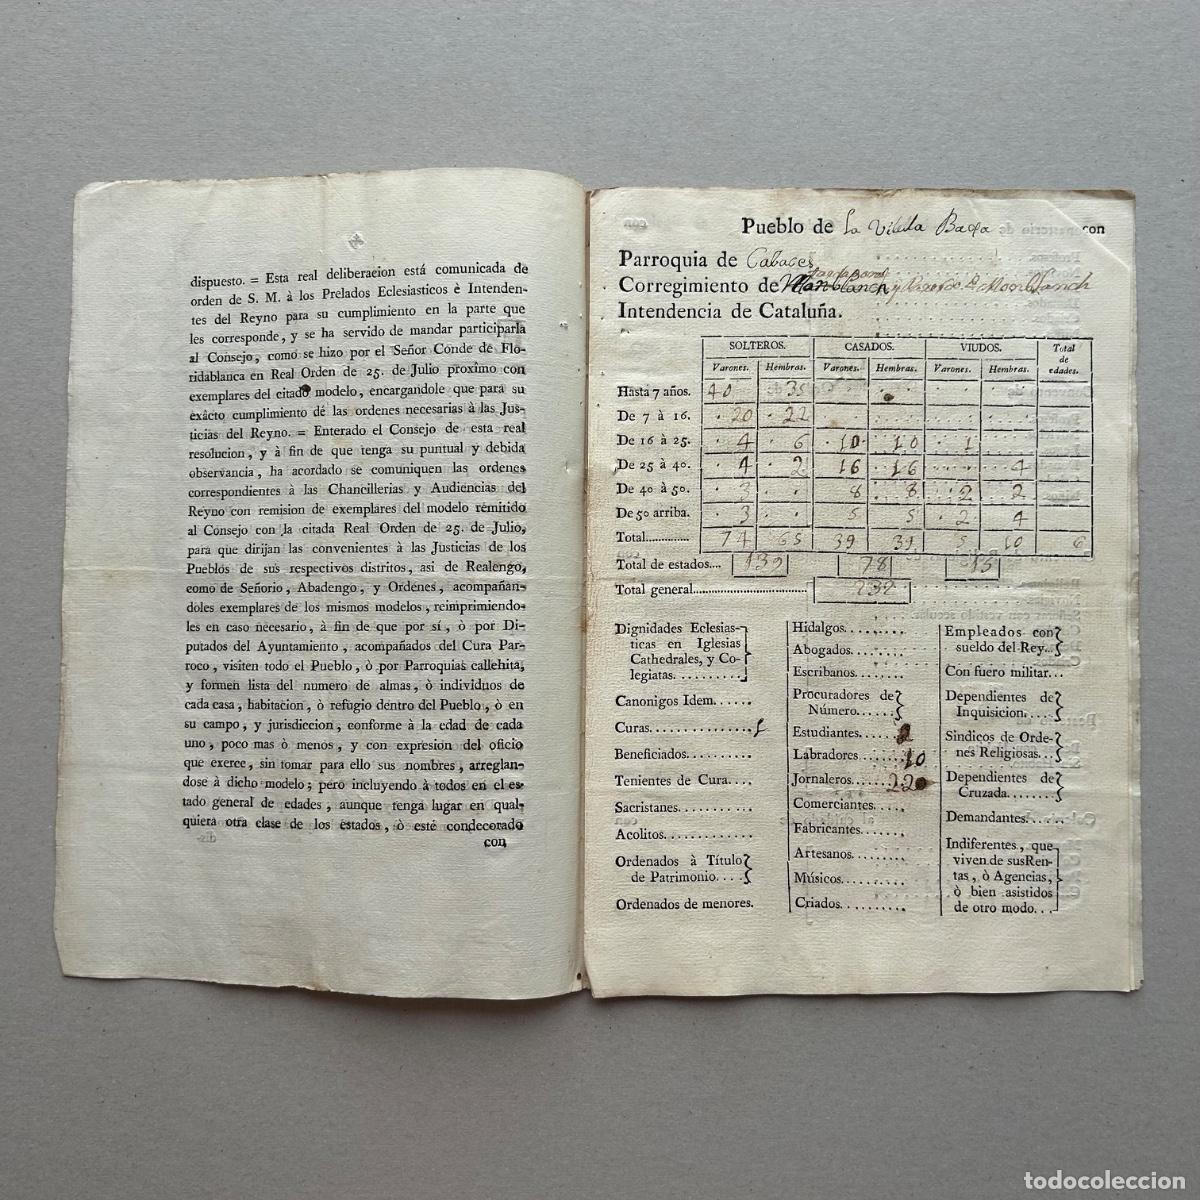 dispuesto. = Esta real deliberacion está comunicada de
orden de S. M. à los Prelados Eclesiasticos è Intenden-
tes del Reyno para su cumplimiento en la parte que
les corresponde, y se ha servido de mandar participarla
al Consejo, como se hizo por el Señor Conde de Flo-
ridablanca en Real Orden de 25. de Julio proximo con
exemplares del citado modelo, encargandole que para su
exâcto cumplimiento dé las ordenes necesarias à las Jus-
ticias del Reyno. = Enterado el Consejo de esta real
resolucion, y à fin de que tenga su puntual y debida
observancia, ha acordado se comuniquen las ordenes
correspondientes à las Chancillerias y Audiencias del
Reyno con remision de exemplares del modelo remitido
al Consejo con la citada Real Orden de 25. de Julio,
para que dirijan las convenientes à las Justicias de los
Pueblos de sus respectivos distritos, asi de Realengo,
como de Señorio, Abadengo, y Ordenes, acompañan-
doles exemplares de los mismos modelos, reimprimiendo-
les en caso necesario, à fin de que por sí, ò por Di-
putados del Ayuntamiento, acompañados del Cura Par-
roco, visiten todo el Pueblo, ò por Parroquias callehita,
y formen lista del numero de almas, ò individuos de
cada casa, habitacion, ò refugio dentro del Pueblo, ò en
su campo, y jurisdiccion, conforme à la edad de cada
uno, poco mas ò menos, y con expresion del oficio
que exerce, sin tomar para ello sus nombres, arreglan-
dose à dicho modelo; pero incluyendo à todos en el es-
tado general de edades, aunque tenga lugar en qual-
quiera otra clase de los estados, ò esté condecorado
con
Pueblo de La Vilella Baxa con
Parroquia de Cabaces
Corregimiento de Montblanch
Intendencia de Cataluña.
SOLTEROS. CASADOS. VIUDOS. Total de edades.
Varones. Hembras. Varones. Hembras. Varones. Hembras.
Hasta 7 años. 40 35
De 7 à 16. 20 22
De 16 à 25. 4 6 10 10 1
De 25 à 40. 4 2 16 16 4
De 40 à 50. 3 8 8 2 2
De 50 arriba. 3 5 5 2 4
Total 74 65 39 39 5 10
Total de estados 139 78 15
Total general 232
Dignidades Eclesias-
ticas en Iglesias
Cathedrales, y Co-
legiatas.
Canonigos Idem.
Curas 1
Beneficiados.
Tenientes de Cura.
Sacristanes.
Acolitos.
Ordenados à Título
de Patrimonio.
Ordenados de menores.
Hidalgos.
Abogados.
Escribanos.
Procuradores de
Número.
Estudiantes. 2
Labradores 10
Jornaleros. 22
Comerciantes.
Fabricantes.
Artesanos.
Músicos.
Criados.
Empleados con
sueldo del Rey.
Con fuero militar.
Dependientes de
Inquisicion.
Sindicos de Orde-
nes Religiosas.
Dependientes de
Cruzada.
Demandantes.
Indiferentes, que
viven de sus Ren-
tas, ò Agencias,
ò bien asistidos
de otro modo.
todocoleccion